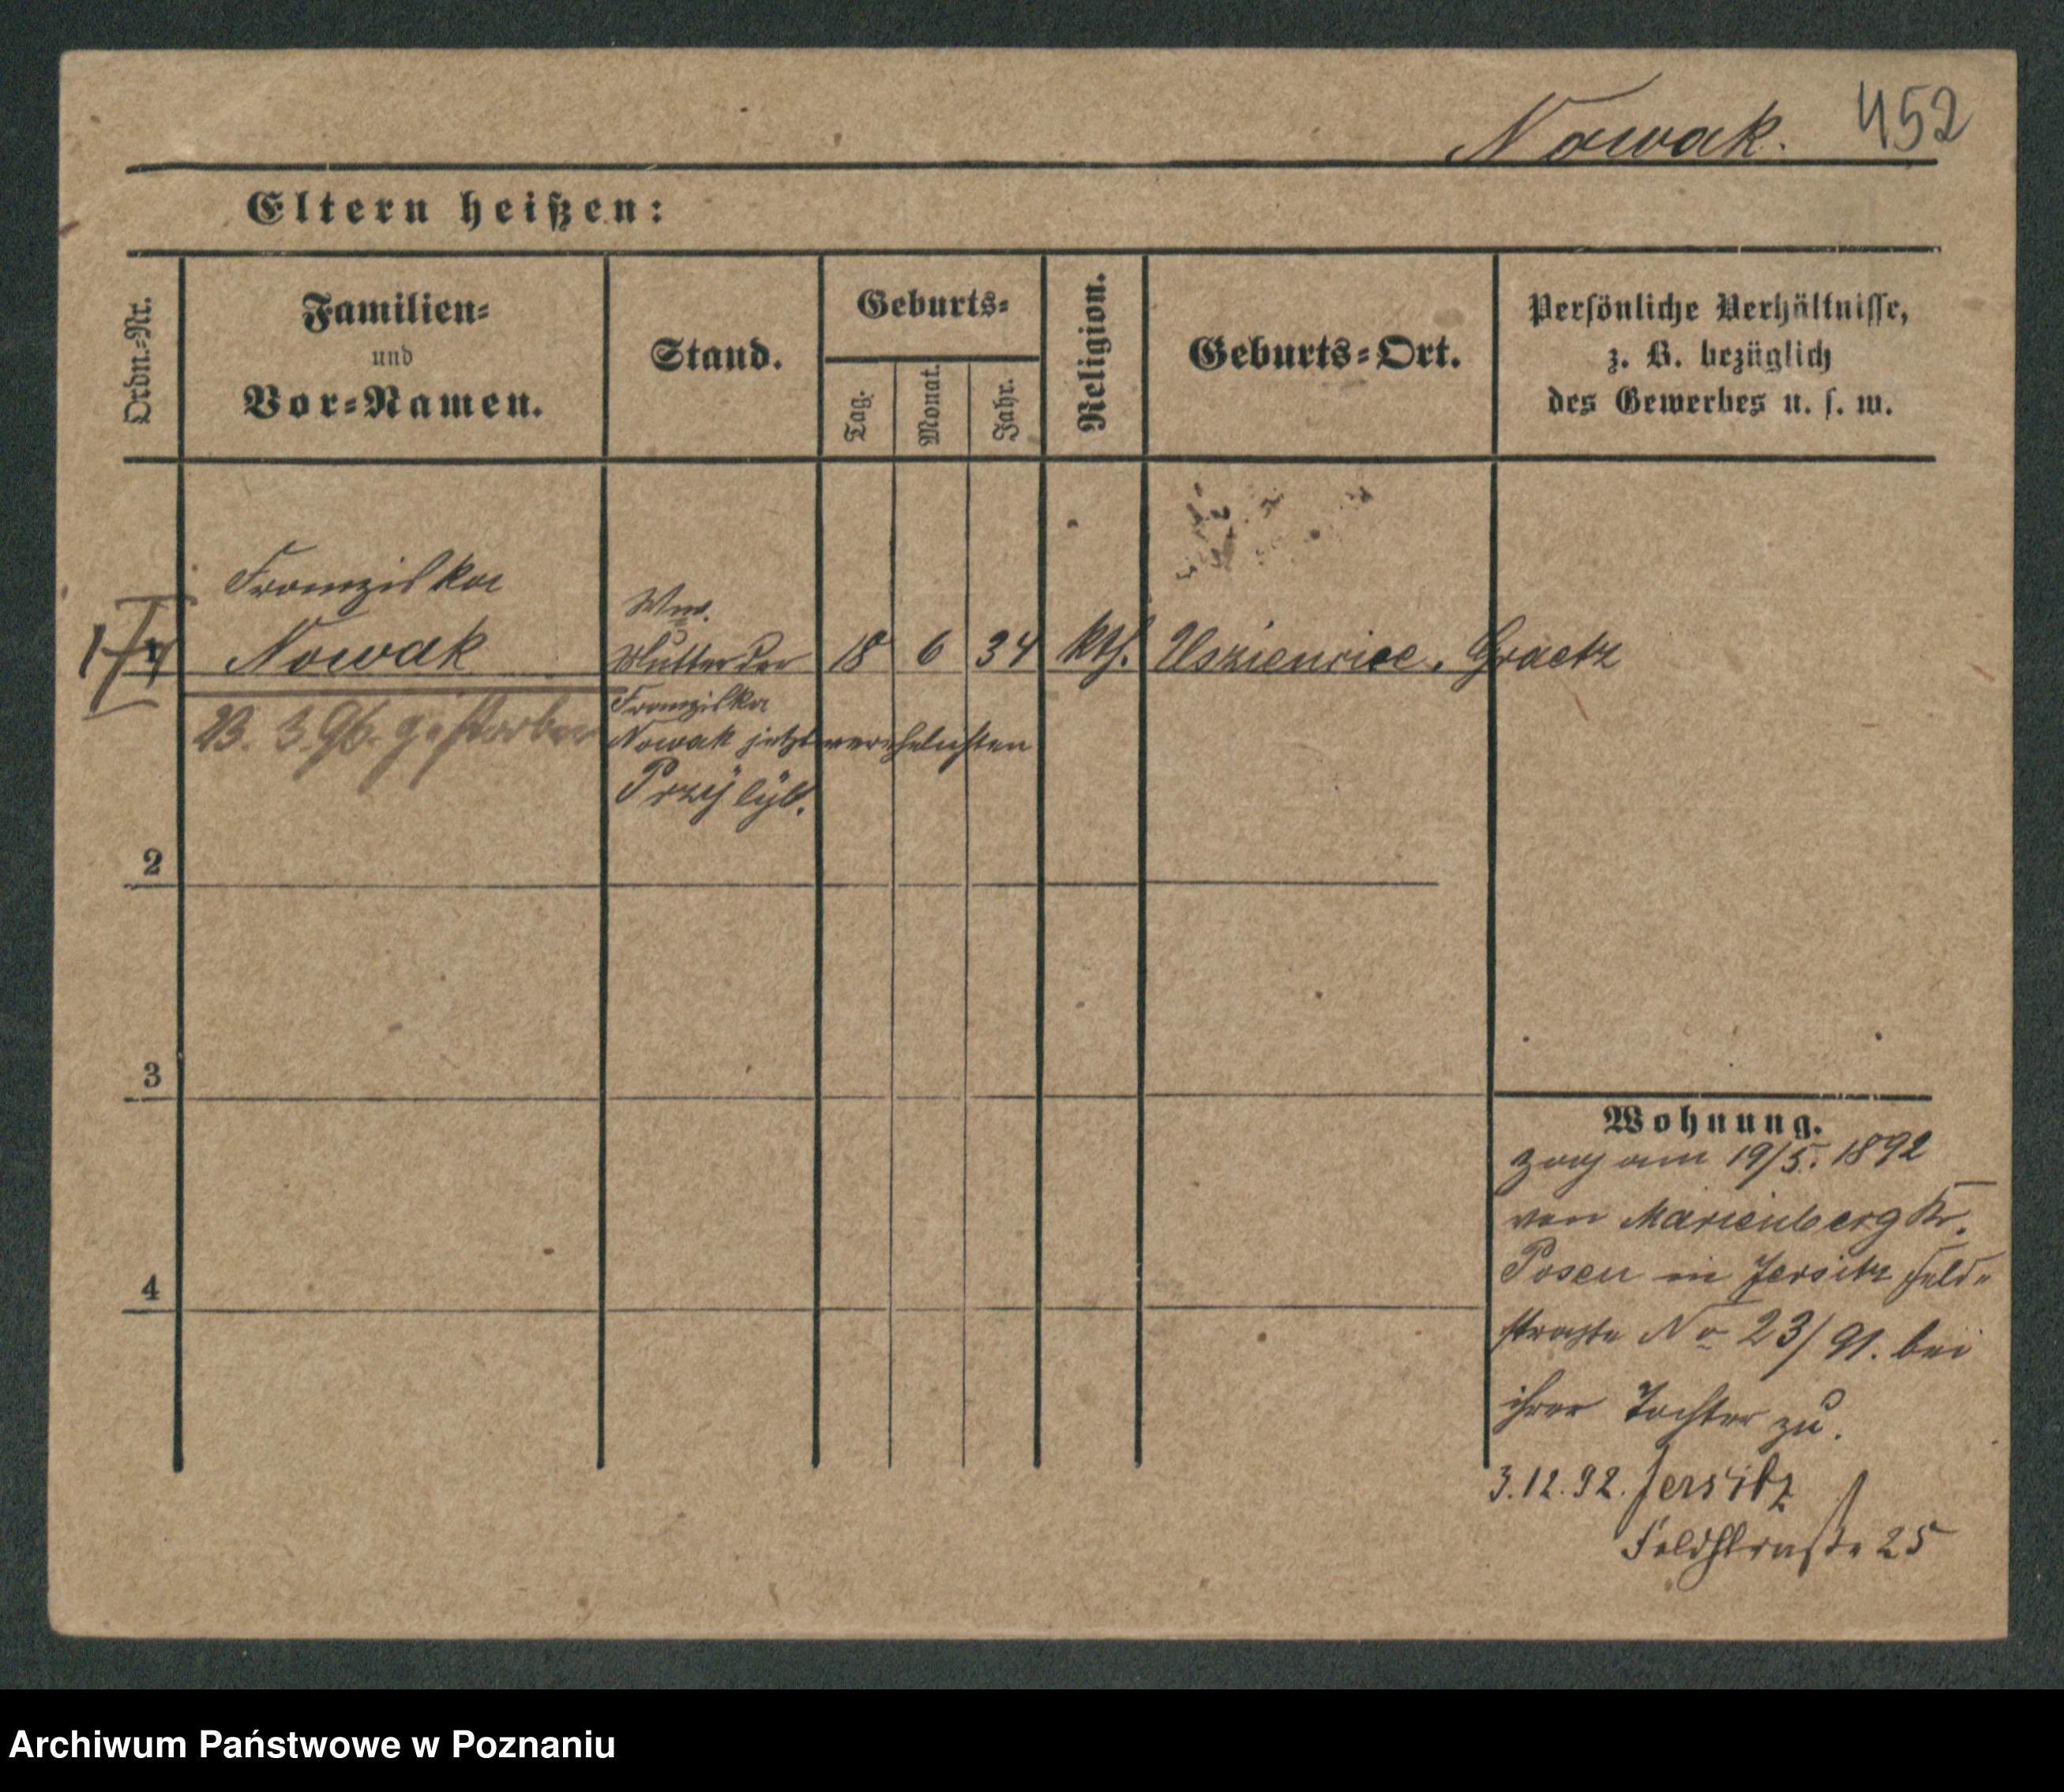 Nowak. 452
Eltern heißen:
Ordn.-Nr.
Familien-
und
Vor-Namen.
Stand.
Geburts-
Tag.
Monat.
Jahr.
Religion.
Geburts-Ort.
Persönliche Verhältnisse,
z. B. bezüglich
des Gewerbes u. s. w.
Franziska
Nowak
23. 3. 96. gestorben
Ww.
Mutter der
Franziska
Nowak jetzt verehelichten
18 6 34 kth. Graetz
2
3
4
Wohnung.
zog am 19/5. 1892
von Marienberg Kr.
Posen in Jersitz Feld-
straße No 23/91. bei
ihrer Tochter zu.
3.12.92. Jersitz
Feldstraße 25
Archiwum Państwowe w Poznaniu